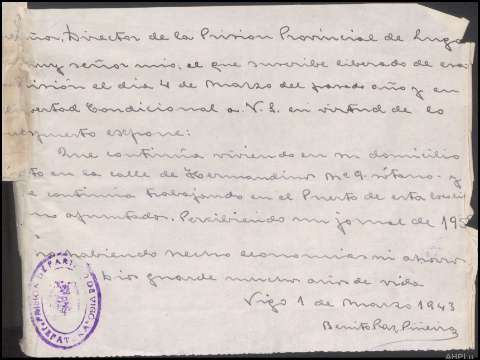 eñor, Director de la Prision Provincial de Lugo
muy señor mio, el que suscribe liberado de esa
prisión el dia 4 de Marzo del pasado año y en
libertad Condicional a V. S. en virtud de lo
uspuesto expone:
Que continúa viviendo en su domicilio
en la calle de Hermandino Nº 9 sótano y
continúa trabajando en el Puerto de esta
apuntador. Percibiendo un jornal de 195
no habiendo hecho economias ni ahorro
Dios guarde muchos años de vida
Vigo 1 de Marzo 1943
Benito Paz Piñeiro
PRISION DE VIGO
JEFATURA
AHPLu